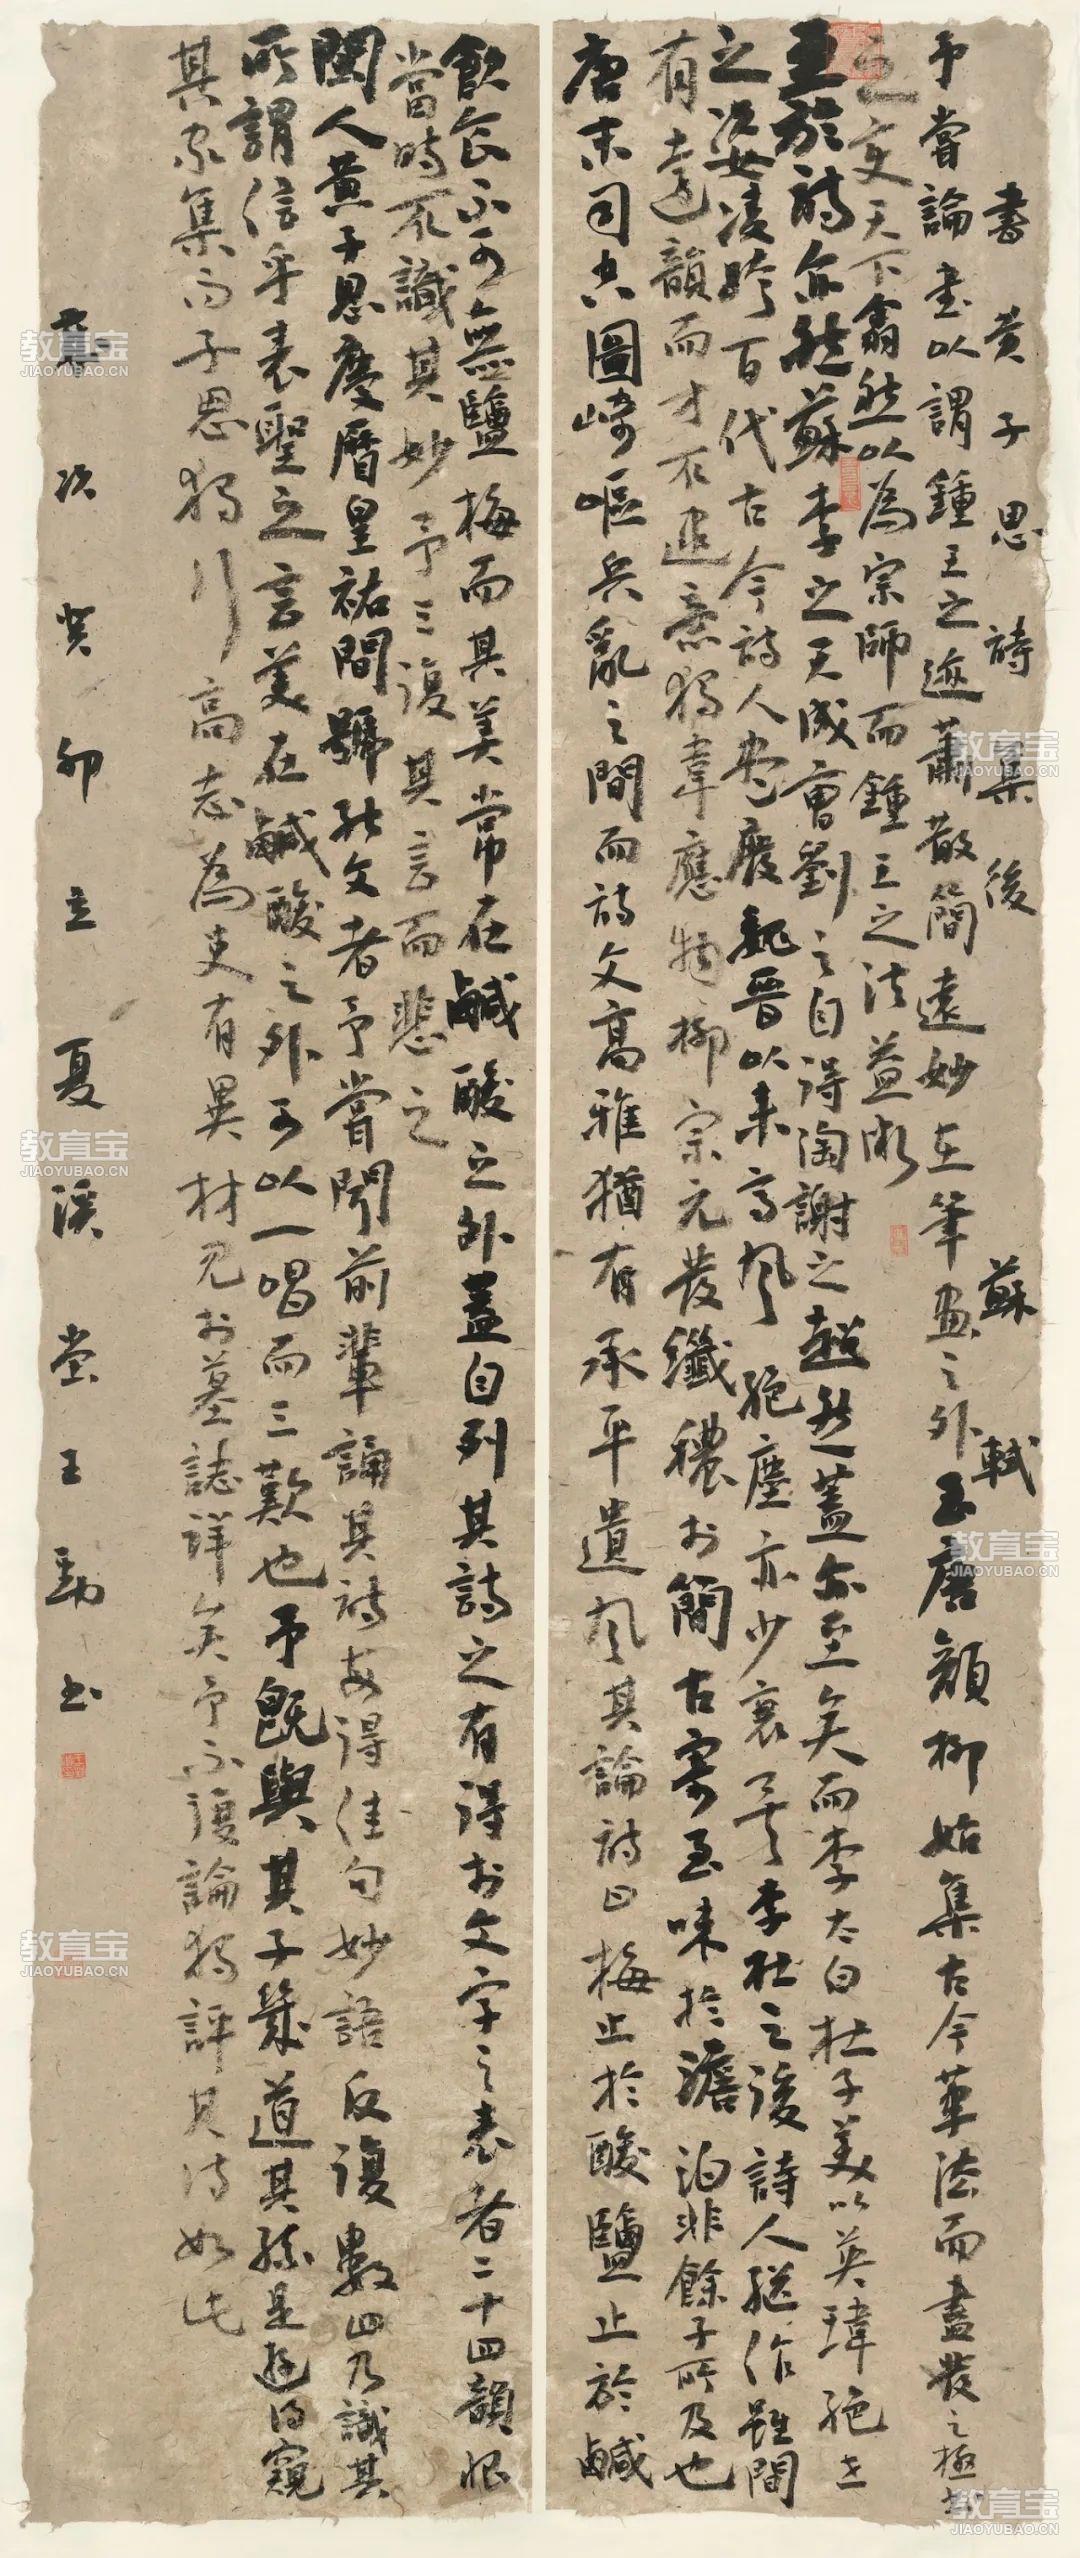 書黄子思詩集後　蘇軾
予嘗論書以謂鍾王之迹蕭散簡遠妙在筆畫之外至唐顔柳始集古今筆法而盡發之極書
之變天下翕然以為宗師而鍾王之法益微
至於詩亦然蘇李之天成曹劉之自得陶謝之超然蓋亦至矣而李太白杜子美以英瑋絶世
之姿凌跨百代古今詩人盡廢魏晋以来高風絶塵亦少衰矣李杜之後詩人継作雖間
有遠韻而才不逮意獨韋應物柳宗元發纖穠於簡古寄至味於澹泊非餘子所及也
唐末司空圖崎嶇兵亂之間而詩文高雅猶有承平遺風其論詩曰梅止於酸鹽止於鹹
飲食不可無鹽梅而其美常在鹹酸之外蓋自列其詩之有得於文字之表者二十四韻恨
當時不識其妙予三復其言而悲之
閩人黄子思慶曆皇祐間號能文者予嘗聞前輩誦其詩每得佳句妙語反復數四乃識其
所謂信乎表聖之言美在鹹酸之外可以一唱而三歎也予既與其子幾道其孫是遊得窺
其家集而子思獨行高志為吏有異材見於墓誌詳矣予不復論獨評其詩如此
歲次癸卯立夏溪堂王勁書
教育宝
JIAOYUBAO.CN
教育宝
JIAOYUBAO.CN
教育宝
JIAOYUBAO.CN
教育宝
JIAOYUBAO.CN
教育宝
JIAOYUBAO.CN
教育宝
JIAOYUBAO.CN